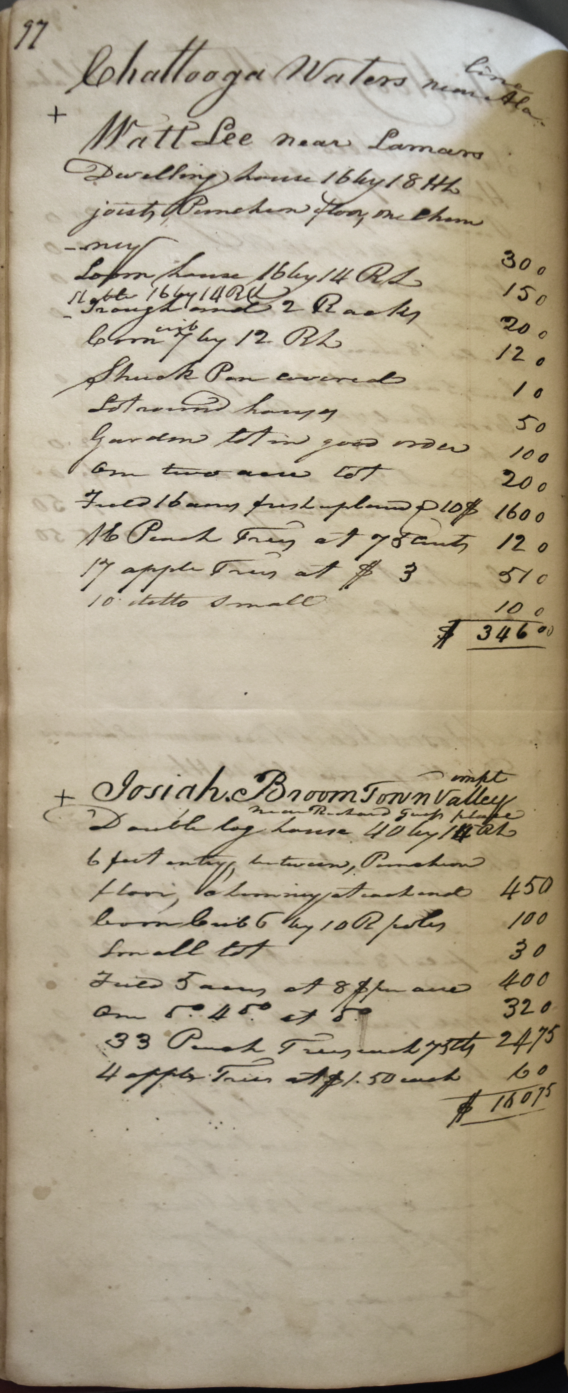 97
Chattooga Waters near Ala. line
+
Watt Lee near Lamars
Dwelling house 16 by 18 Hh
joists, Puncheon floor, one Chim
-ney 30 0
Loom house 16 by 14 R L 15 0
Stable 16 by 14 R L
-Trough and 2 Racks 20 0
Corn crib 7 by 12 R L 12 0
Shuck Pen covered 1 0
Lot round houses 5 0
Garden lot in good order 10 0
One two acre lot 20 0
Field 16 acres fresh upland @ 10$ 160 0
16 Peach Trees at 75 cents 12 0
17 apple Trees at $ 3 51 0
10 ditto small 10 0
$ 346 00
+ Josiah. Broom Town Valley impt
near Richard Guess place
Double log house 40 by 14 R L
6 feet entry, between, Puncheon
floor, Chimney at each end 45 0
Corn Crib 6 by 10 R poles 10 0
Small lot 3 0
Field 5 acres at 8$ per acre 40 0
One do 4 do at do 32 0
33 Peach Trees each 75 cts 24 75
4 apple Trees at $1.50 each 6 0
$ 160 75